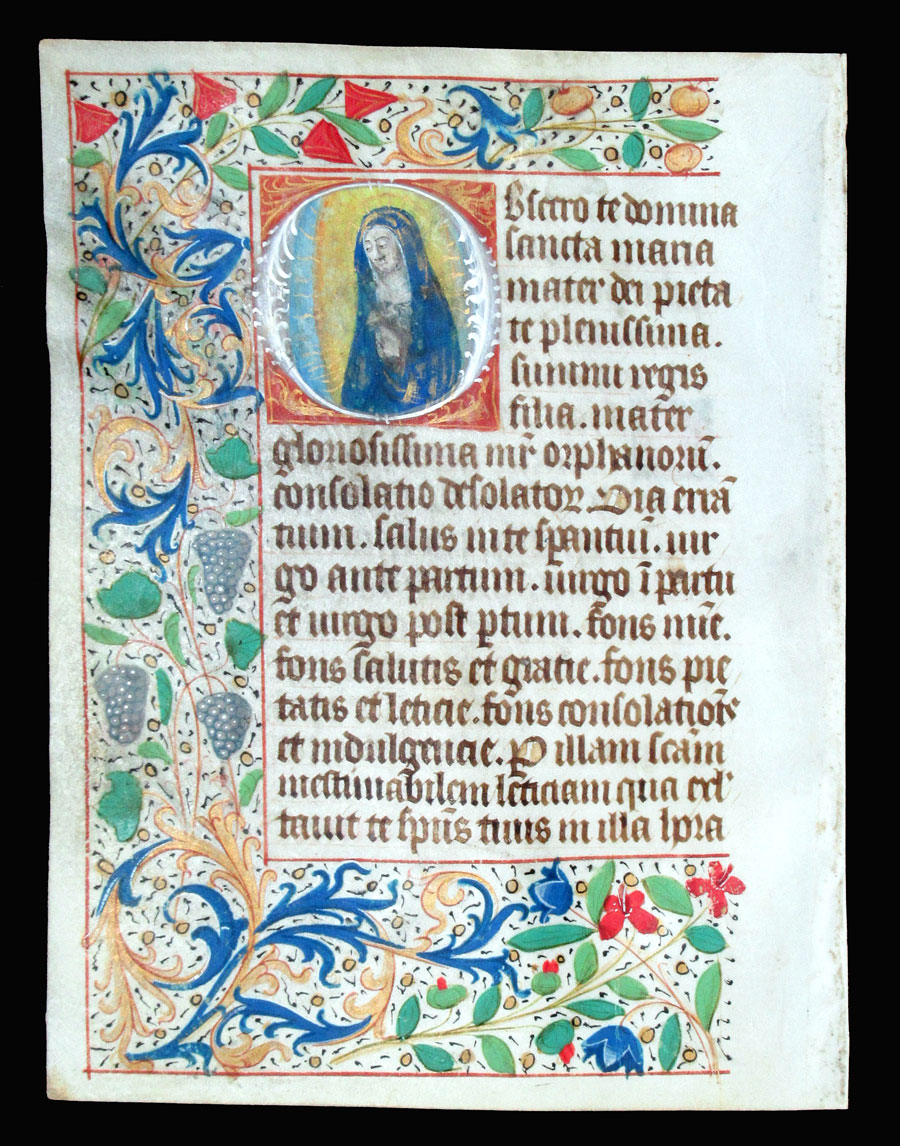 Obsecro te domina
sancta maria
mater dei pieta
te plenissima.
summi regis
filia. mater
gloriosissima mr̄ orphanorū.
consolatio desolatoꝝ Via errā
tium. salus in te sꝑantiū. vir
go ante partum. virgo ī partu
et virgo post ꝑtum. fons mīe.
fons salutis et gratie. fons pie
tatis et leticie. fons consolatiōis
et indulgencie. ꝑ illam scām
inestimabilem leticiam qua exl'
tauit te spūs tuus in illa hora